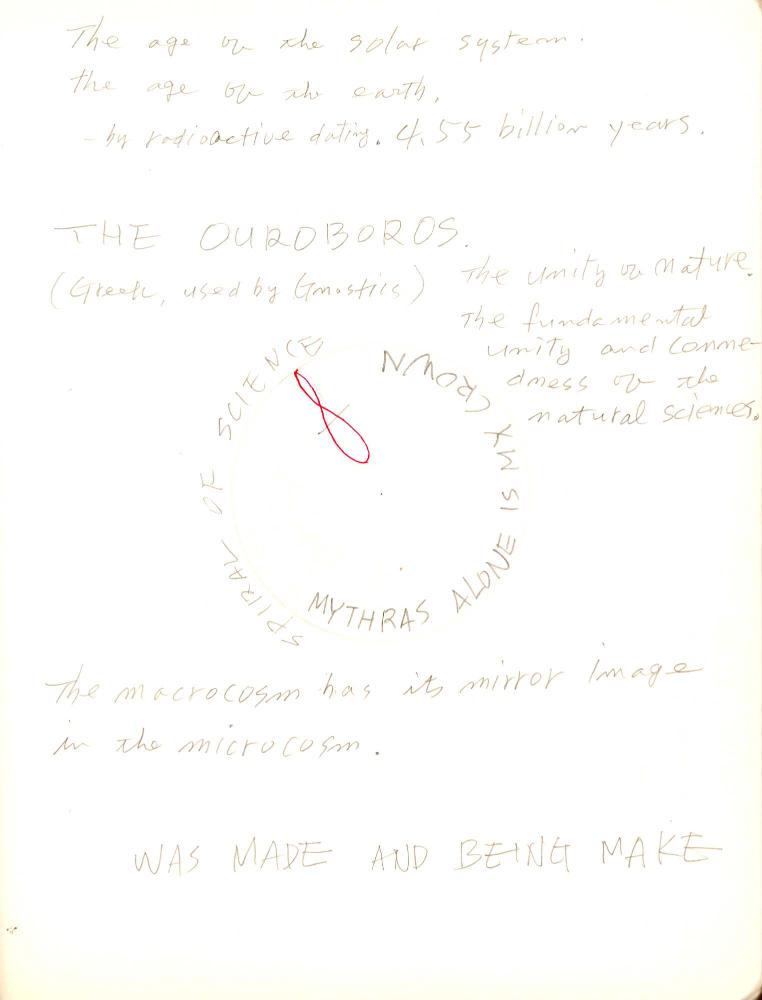 The age of the solar system.
the age of the earth,
- by radioactive dating. 4.55 billion years.
THE OUROBOROS.
(Greek, used by Gnostics)
The unity of nature.
The fundamental
unity and conne-
dness of the
natural sciences.
SPIRAL OF SCIENCE
MYTHRAS ALONE IS MY CROWN
The macrocosm has its mirror image
in the microcosm.
WAS MADE AND BEING MAKE